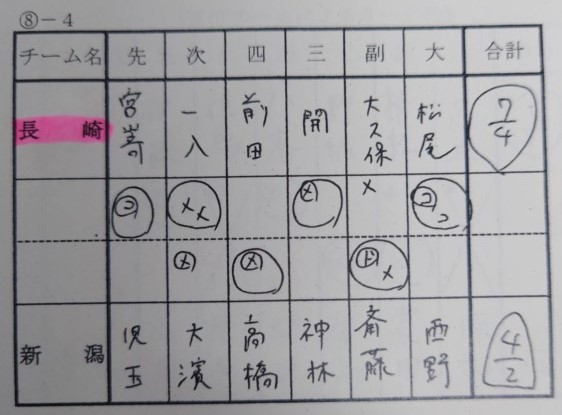 ⑧-4
チーム名 先 次 四 三 副 大 合計
長崎 宮嵜 一入 前田 開 大久保 松尾 7/4
コ メメ メ メ コ コ
メ メ ド メ
新潟 児玉 大濱 高橋 神林 斎藤 西野 4/2